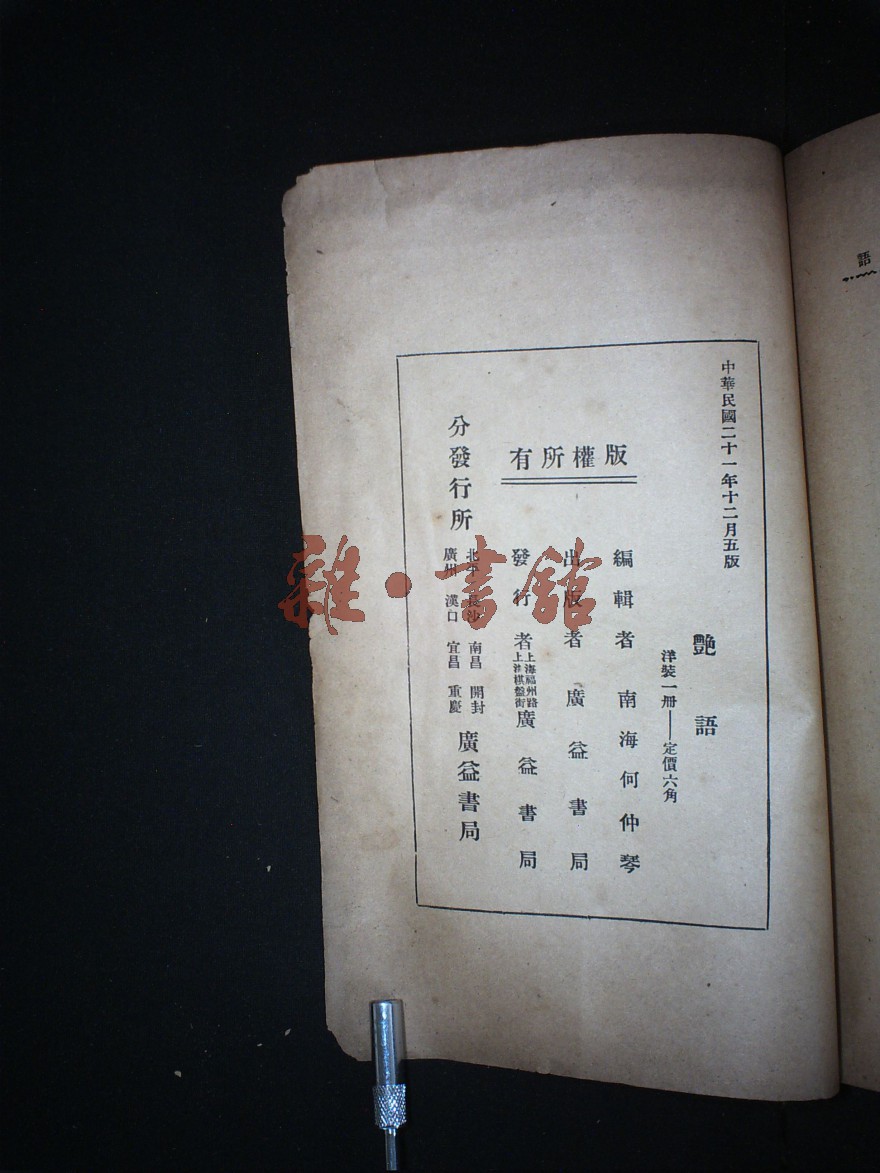 語
中華民國二十一年十二月五版
艷語
洋裝一冊——定價六角
版權所有
編輯者 南海何仲琴
出版者 廣益書局
發行者 上海福州路 上海棋盤街 廣益書局
分發行所 北平 長沙 南昌 開封 廣州 漢口 宜昌 重慶 廣益書局
雜·書館